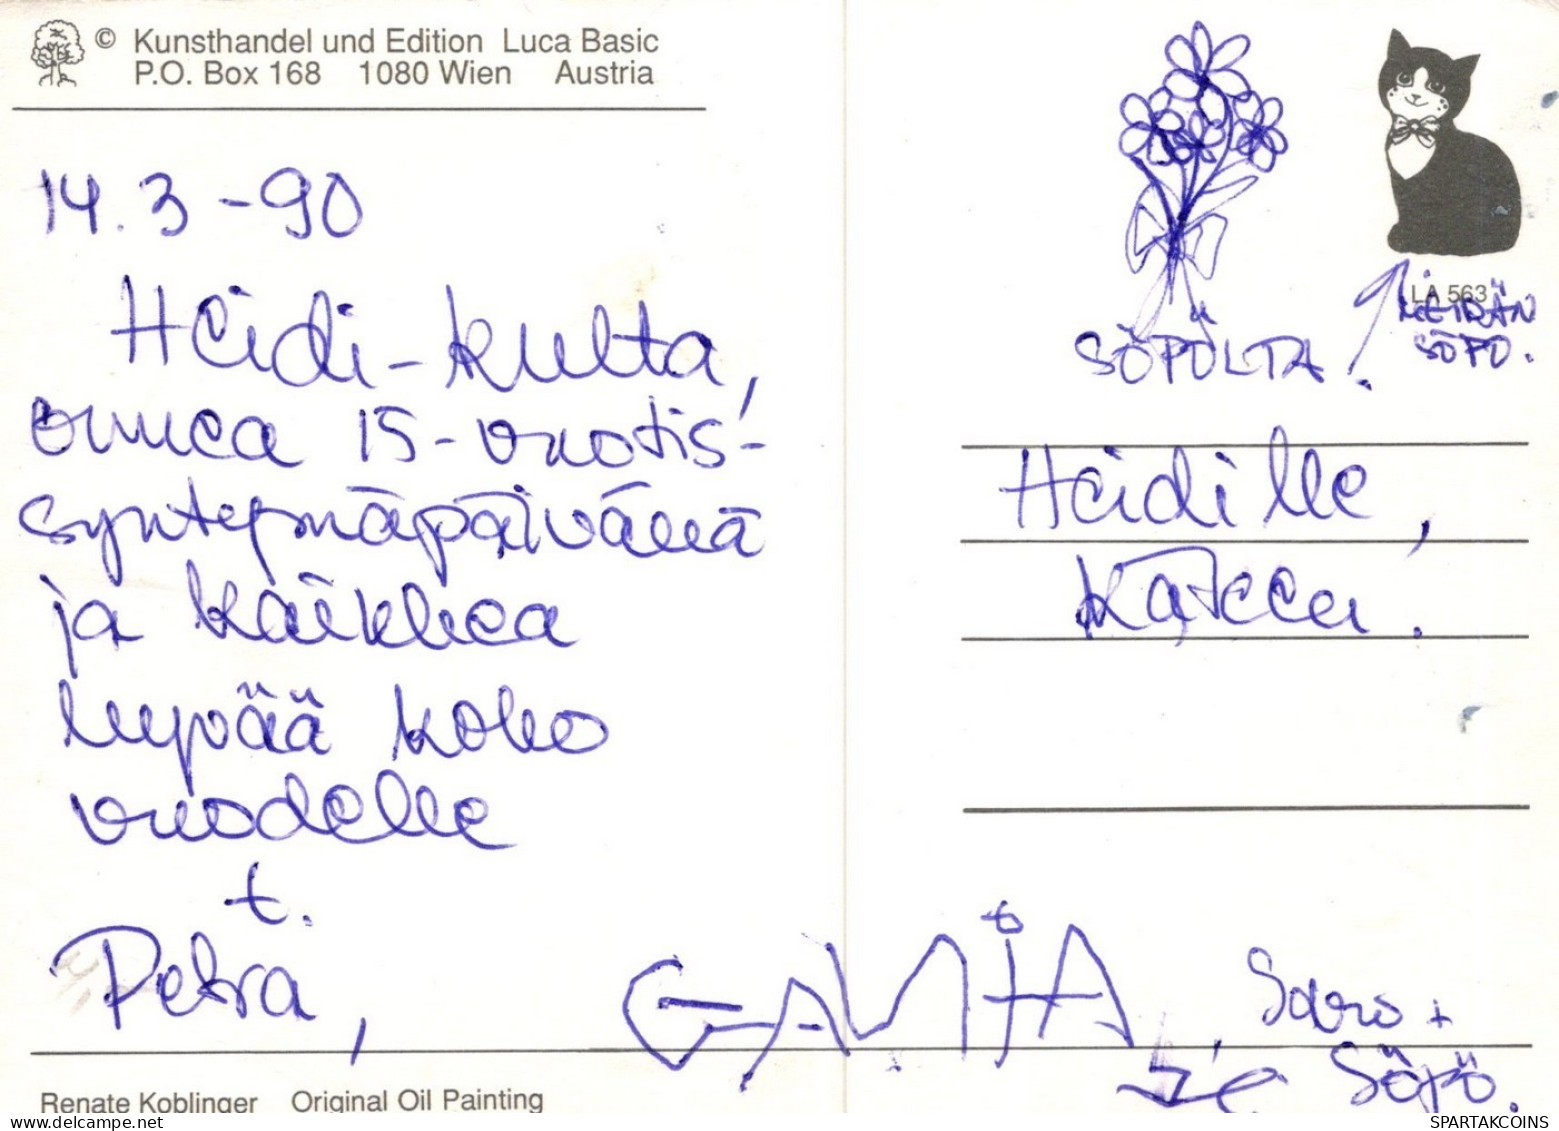 © Kunsthandel und Edition Luca Basic
P.O. Box 168 1080 Wien Austria
14.3 -90
Heidi-kulta,
onnea 15-vuotis-
syntymäpäivänä
ja kaikkea
hyvää koko
vuodelle
t.
Petra,
SÖPÖLTÄ!
LA 563
MEIDÄN
SÖPÖ.
Heidille,
Käteen.
t.
Saro +
Söpö.
Renate Koblinger Original Oil Painting
SPARTAKCOINS